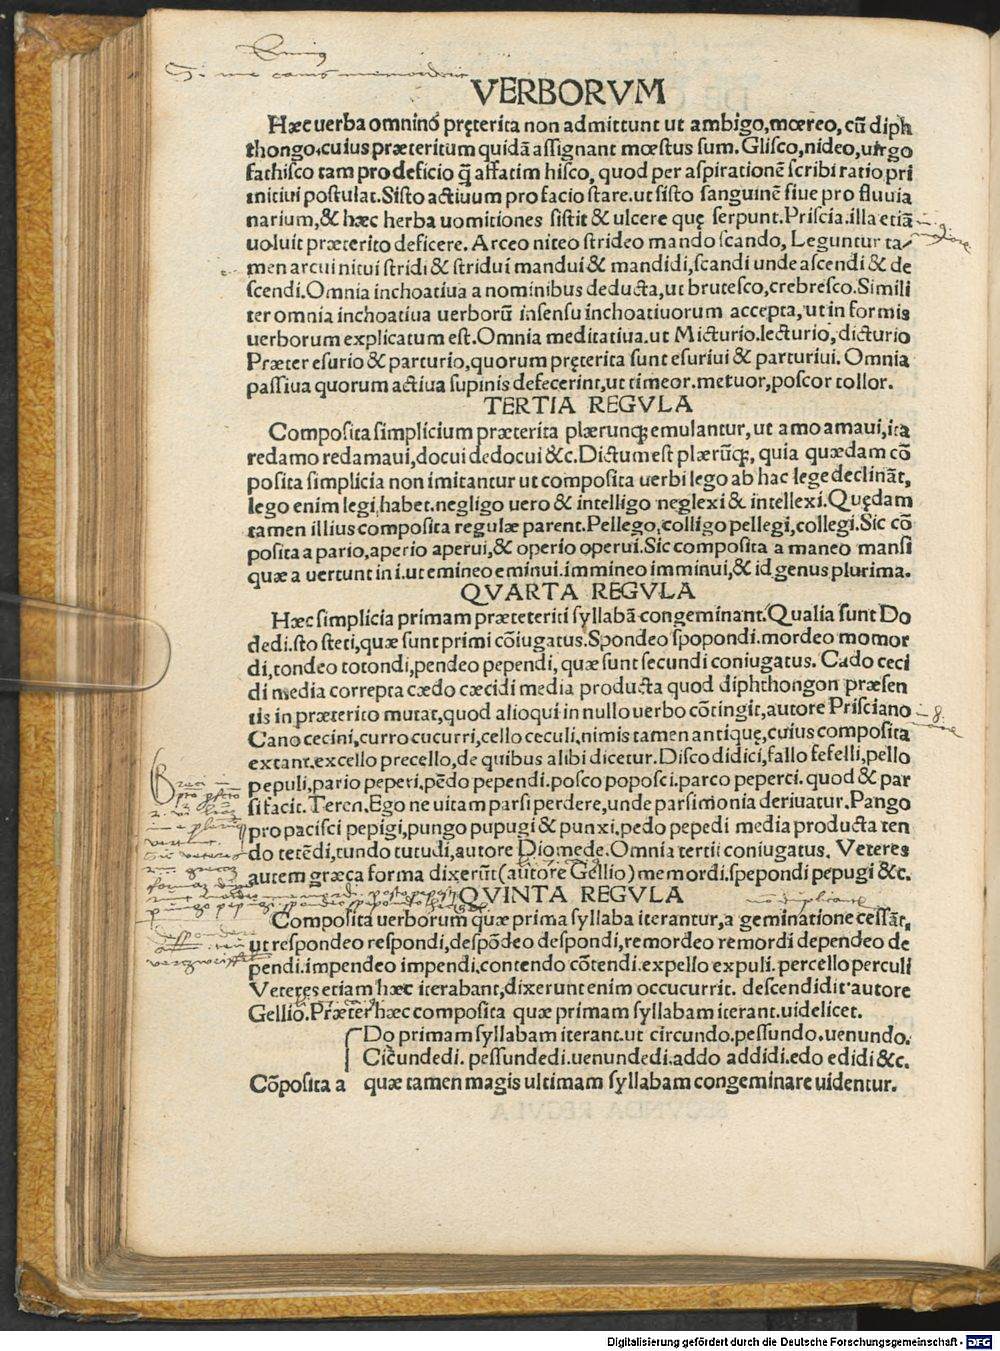 Ennius
Si me canis memorderit
VERBORVM
Hæc uerba omnino pręterita non admittunt ut ambigo, mœreo, cū diph
thongo, cuius præteritum quidā assignant mœstus sum. Glisco, nideo, uirgo
fathisco tam pro deficio q̃ affatim hisco, quod per aspirationē scribi ratio pri
mitiui postulat. Sisto actiuum pro facio stare. ut sisto sanguinē siue pro fluuia
narium, & hæc herba uomitiones sistit & ulcere quę serpunt. Priscia. illa etiā
uoluit præterito deficere. Arceo niteo strideo mando scando, Leguntur ta/
men arcui nitui stridi & stridui mandui & mandidi, scandi unde ascendi & de
scendi. Omnia inchoatiua a nominibus deducta, ut brutesco, crebresco. Simili
ter omnia inchoatiua uerborū in sensu inchoatiuorum accepta, ut in formis
uerborum explicatum est. Omnia meditatiua. ut Micturio. lecturio, dicturio
Præter esurio & parturio, quorum pręterita sunt esuriui & parturiui. Omnia
passiua quorum actiua supinis defecerint, ut timeor. metuor, poscor tollor.
TERTIA REGVLA
Composita simplicium præterita plærunq; emulantur, ut amo amaui, ita
redamo redamaui, docui dedocui &c. Dictum est plærūq;, quia quædam cō
posita simplicia non imitantur ut composita uerbi lego ab hac lege declināt,
lego enim legi habet. negligo uero & intelligo neglexi & intellexi. Quędam
tamen illius composita regulæ parent. Pellego, colligo pellegi, collegi. Sic cō
posita a pario, aperio aperui, & operio operui. Sic composita a maneo mansi
quæ a uertunt in i. ut emineo eminui. immineo imminui, & id genus plurima.
QVARTA REGVLA
Hæc simplicia primam præteteriti syllabā congeminant. Qualia sunt Do
dedi. sto steti, quæ sunt primi cōiugatus. Spondeo spopondi. mordeo momor
di, tondeo totondi, pendeo pependi, quæ sunt secundi coniugatus. Cado ceci
di media correpta cædo cæcidi media producta quod diphthongon præsen
tis in præterito mutat, quod alioqui in nullo uerbo cōtingit, autore Prisciano
Cano cecini, curro cucurri, cello ceculi, nimis tamen antiquę, cuius composita
extant. excello precello, de quibus alibi dicetur. Disco didici, fallo fefelli, pello
pepuli, pario peperi, pēdo pependi. posco poposci. parco peperci. quod & par
si facit. Teren. Ego ne uitam parsi perdere, unde parsimonia deriuatur. Pango
pro pacisci pepigi, pungo pupugi & punxi. pedo pepedi media producta ten
do tetēdi, tundo tutudi, autore Diomede. Omnia tertii coniugatus. Veteres
autem græca forma dixerūt (autore Gellio) memordi. spepondi pepugi &c.
QVINTA REGVLA
Composita uerborum quæ prima syllaba iterantur, a geminatione cessāt,
ut respondeo respondi, despōdeo despondi, remordeo remordi dependeo de
pendi. impendeo impendi. contendo cōtendi. expello expuli. percello perculi
Veteres etiam hæc iterabant, dixerunt enim occucurrit. descendidit autore
Gellio. Præter hæc composita quæ primam syllabam iterant. uidelicet.
Do primam syllabam iterant. ut circundo. pessundo. uenundo.
Circūdedi. pessundedi. uenundedi. addo addidi. edo edidi &c.
Cōposita a quæ tamen magis ultimam syllabam congeminare uidentur.
Digitalisierung gefördert durch die Deutsche Forschungsgemeinschaft - DFG